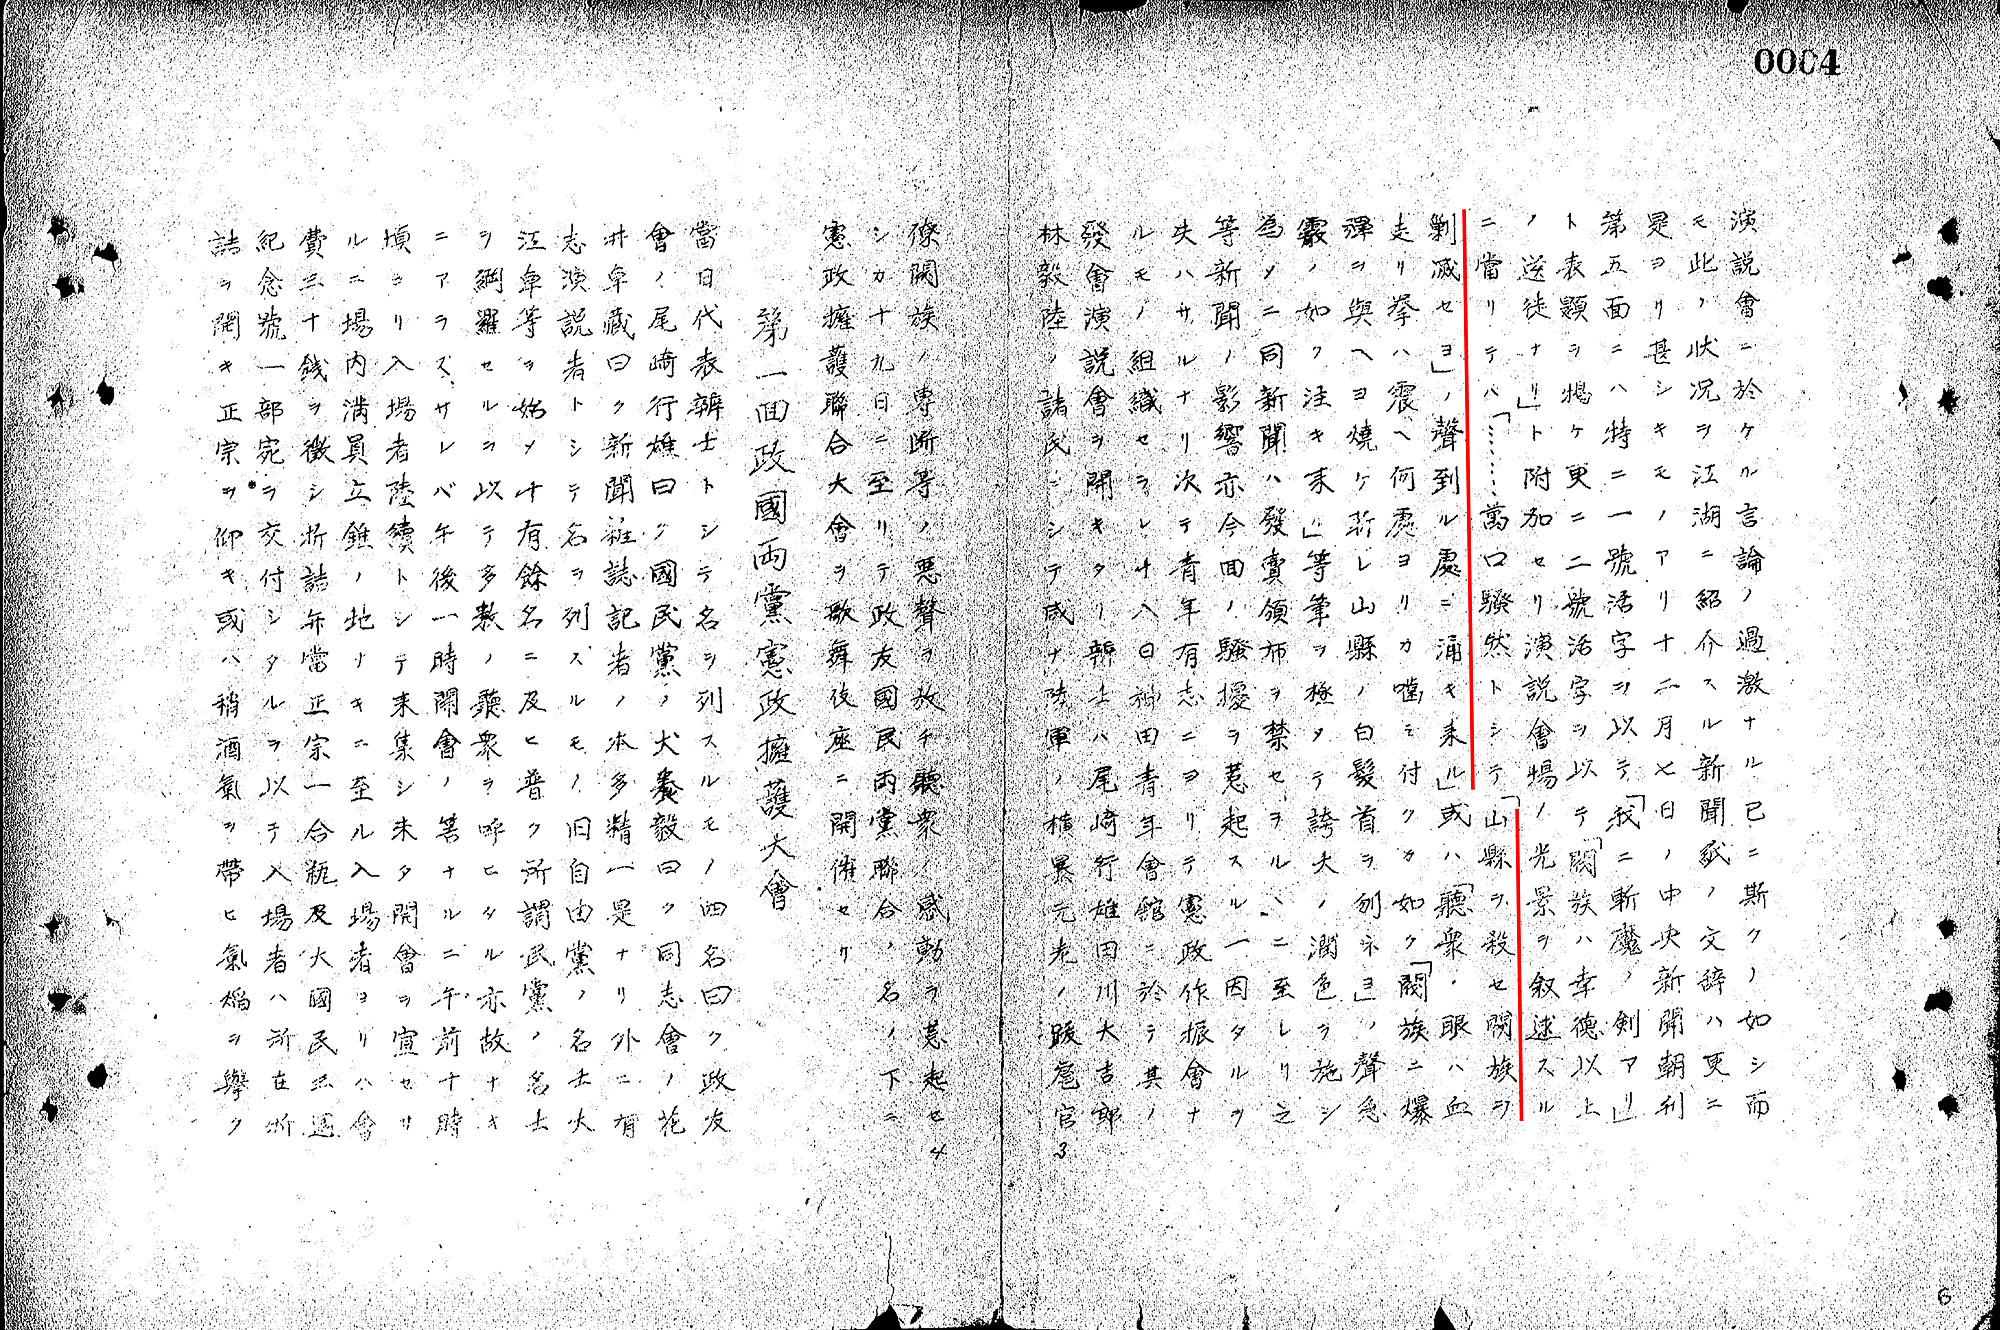 0004
演説會ニ於ケル言論ノ過激ナル已ニ斯クノ如シ而
モ此ノ状况ヲ江湖ニ紹介スル新聞紙ノ文辞ハ更ニ
是ヨリ甚シキモノアリ十二月七日ノ中央新聞朝刊
第五面ニハ特ニ一號活字ヲ以テ「我ニ斬魔ノ剣アリ」
ト表題ヲ掲ケ更ニ二號活字ヲ以テ「閥族ハ幸徳以上
ノ逆徒ナリ」ト附加セリ演説會場ノ光景ヲ叙述スル
ニ當リテハ「……萬口騒然トシテ「山縣ヲ殺セ閥族ヲ
剿滅セヨ」ノ聲到ル處ニ涌キ来ル」或ハ「聽衆・眼ハ血
走リ拳ハ震ヘ何處ヨリカ噛ミ付クカ如ク「閥族ニ爆
彈ヲ與ヘヨ燒ケ斫レ山縣ノ白髮首ヲ刎ネヨ」ノ聲急
霰ノ如ク注キ来」等筆ヲ極メテ誇大ノ潤色ヲ施シ
為メニ同新聞ハ發賣頒布ヲ禁セラルヽニ至レリ之
等新聞ノ影響亦今回ノ騒擾ヲ惹起スル一因タルヲ
失ハサルナリ次テ青年有志ニヨリテ憲政作振會ナ
ルモノ組織セラレ十八日神田青年會館ニ於テ其ノ
發會演説會ヲ開キタリ辯士ハ尾崎行雄田川大吉郎
林毅陸ノ諸氏ニシテ咸ナ陸軍ノ横暴元老ノ跋扈官
3
僚閥族ノ専断等ノ悪聲ヲ放チ聽衆ノ感動ヲ惹起セ
シカ十九日ニ至リテ政友國民両黨聯合ノ名ノ下ニ
憲政擁護聯合大會ヲ歌舞伎座ニ開催セリ
第一回政國両黨憲政擁護大會
當日代表辯士トシテ名ヲ列スルモノ四名曰ク政友
會ノ尾崎行雄曰ク國民黨ノ犬養毅曰ク同志會ノ花
井卓蔵曰ク新聞雜誌記者ノ本多精一是ナリ外ニ有
志演説者トシテ名ヲ列スルモノ旧自由黨ノ名士大
江卓等ヲ始メ十有餘名ニ及ヒ普ク所謂民黨ノ名士
ヲ網羅セルヲ以テ多数ノ聽衆ヲ呼ヒタル亦故ナキ
ニアラス、サレバ午後一時開會ノ筈ナルニ午前十時
頃ヨリ入場者陸續トシテ来集シ未タ開會ヲ宣セサ
ルニ場内満員立錐ノ地ナキニ至ル入場者ヨリハ會
費三十銭ヲ徴シ折詰弁當正宗一合瓶及大國民一週
紀念號一部宛ヲ交付シタルヲ以テ入場者ハ所在折
詰ヲ開キ正宗ヲ仰キ或ハ稍酒氣ヲ帶ヒ氣焔ヲ擧ク
4
6